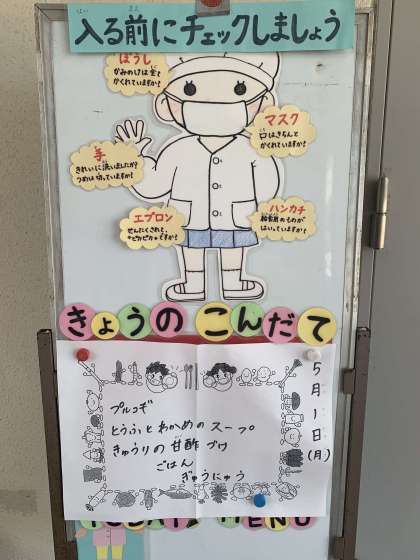 入る前にチェックしましょう
はい
まえ
ぼうし
かみのけは全て
かくれていますか?
マスク
口はきちんと
かくれていますか?
手
きれいに洗いましたか?
つめは切っていますか?
エプロン
せんたくされて、
ピカピカですか?
ハンカチ
給食用のものが
はいっていますか?
きょうのこんだて
5月1日(月)
プルコギ
とうふとわかめのスープ
きゅうりの甘酢づけ
ごはん
ぎゅうにゅう
TODAY'S MENU